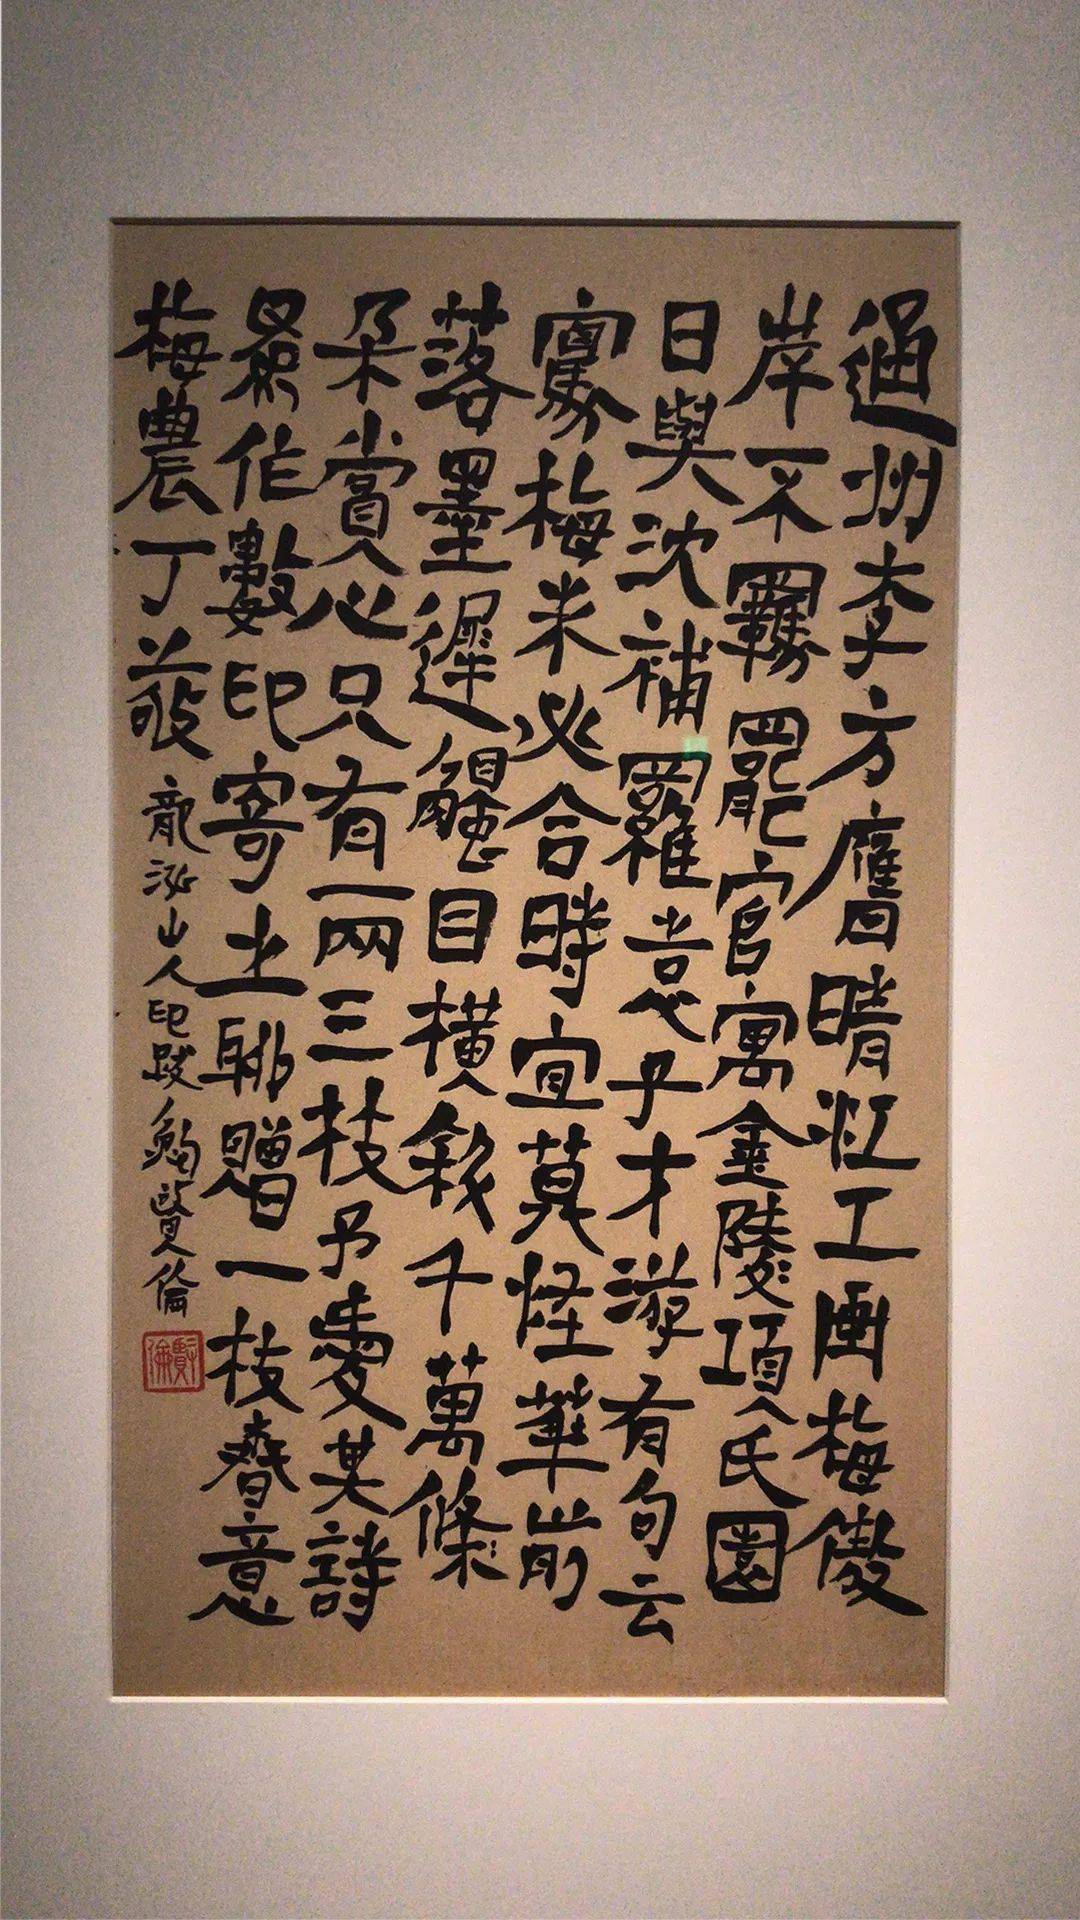 通州李方膺晴江工画梅傲
岸不羈罷官寓金陵項氏園
日與沈補蘿袁子才游有句云
寫梅未必合時宜莫怪華前
落墨遲觸目橫斜千萬條
朵賞心只有兩三枝予愛其詩
作數印寄之聊贈一枝春意
梅農丁敬 龍泓山人印跋 鮑賢倫
賢倫